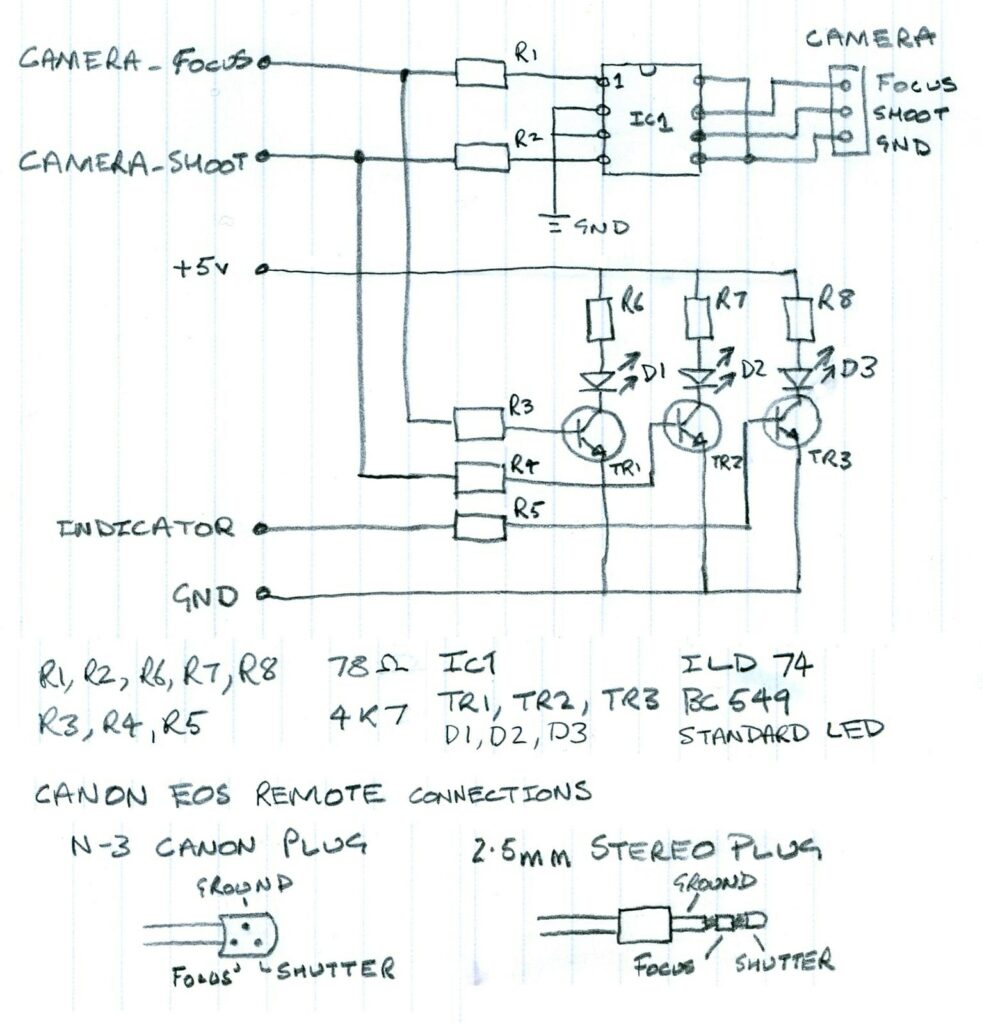 CAMERA_FOCUS
R1
1
IC1
CAMERA
FOCUS
SHOOT
GND
CAMERA_SHOOT
R2
GND
+5v
R6
R7
R8
D1
D2
D3
R3
TR1
TR2
TR3
R4
R5
INDICATOR
GND
R1, R2, R6, R7, R8 78Ω IC1 ILD 74
R3, R4, R5 4K7 TR1, TR2, TR3 BC549
D1, D2, D3 STANDARD LED
CANON EOS REMOTE CONNECTIONS
N-3 CANON PLUG
2.5mm STEREO PLUG
GROUND
FOCUS
SHUTTER
GROUND
FOCUS
SHUTTER